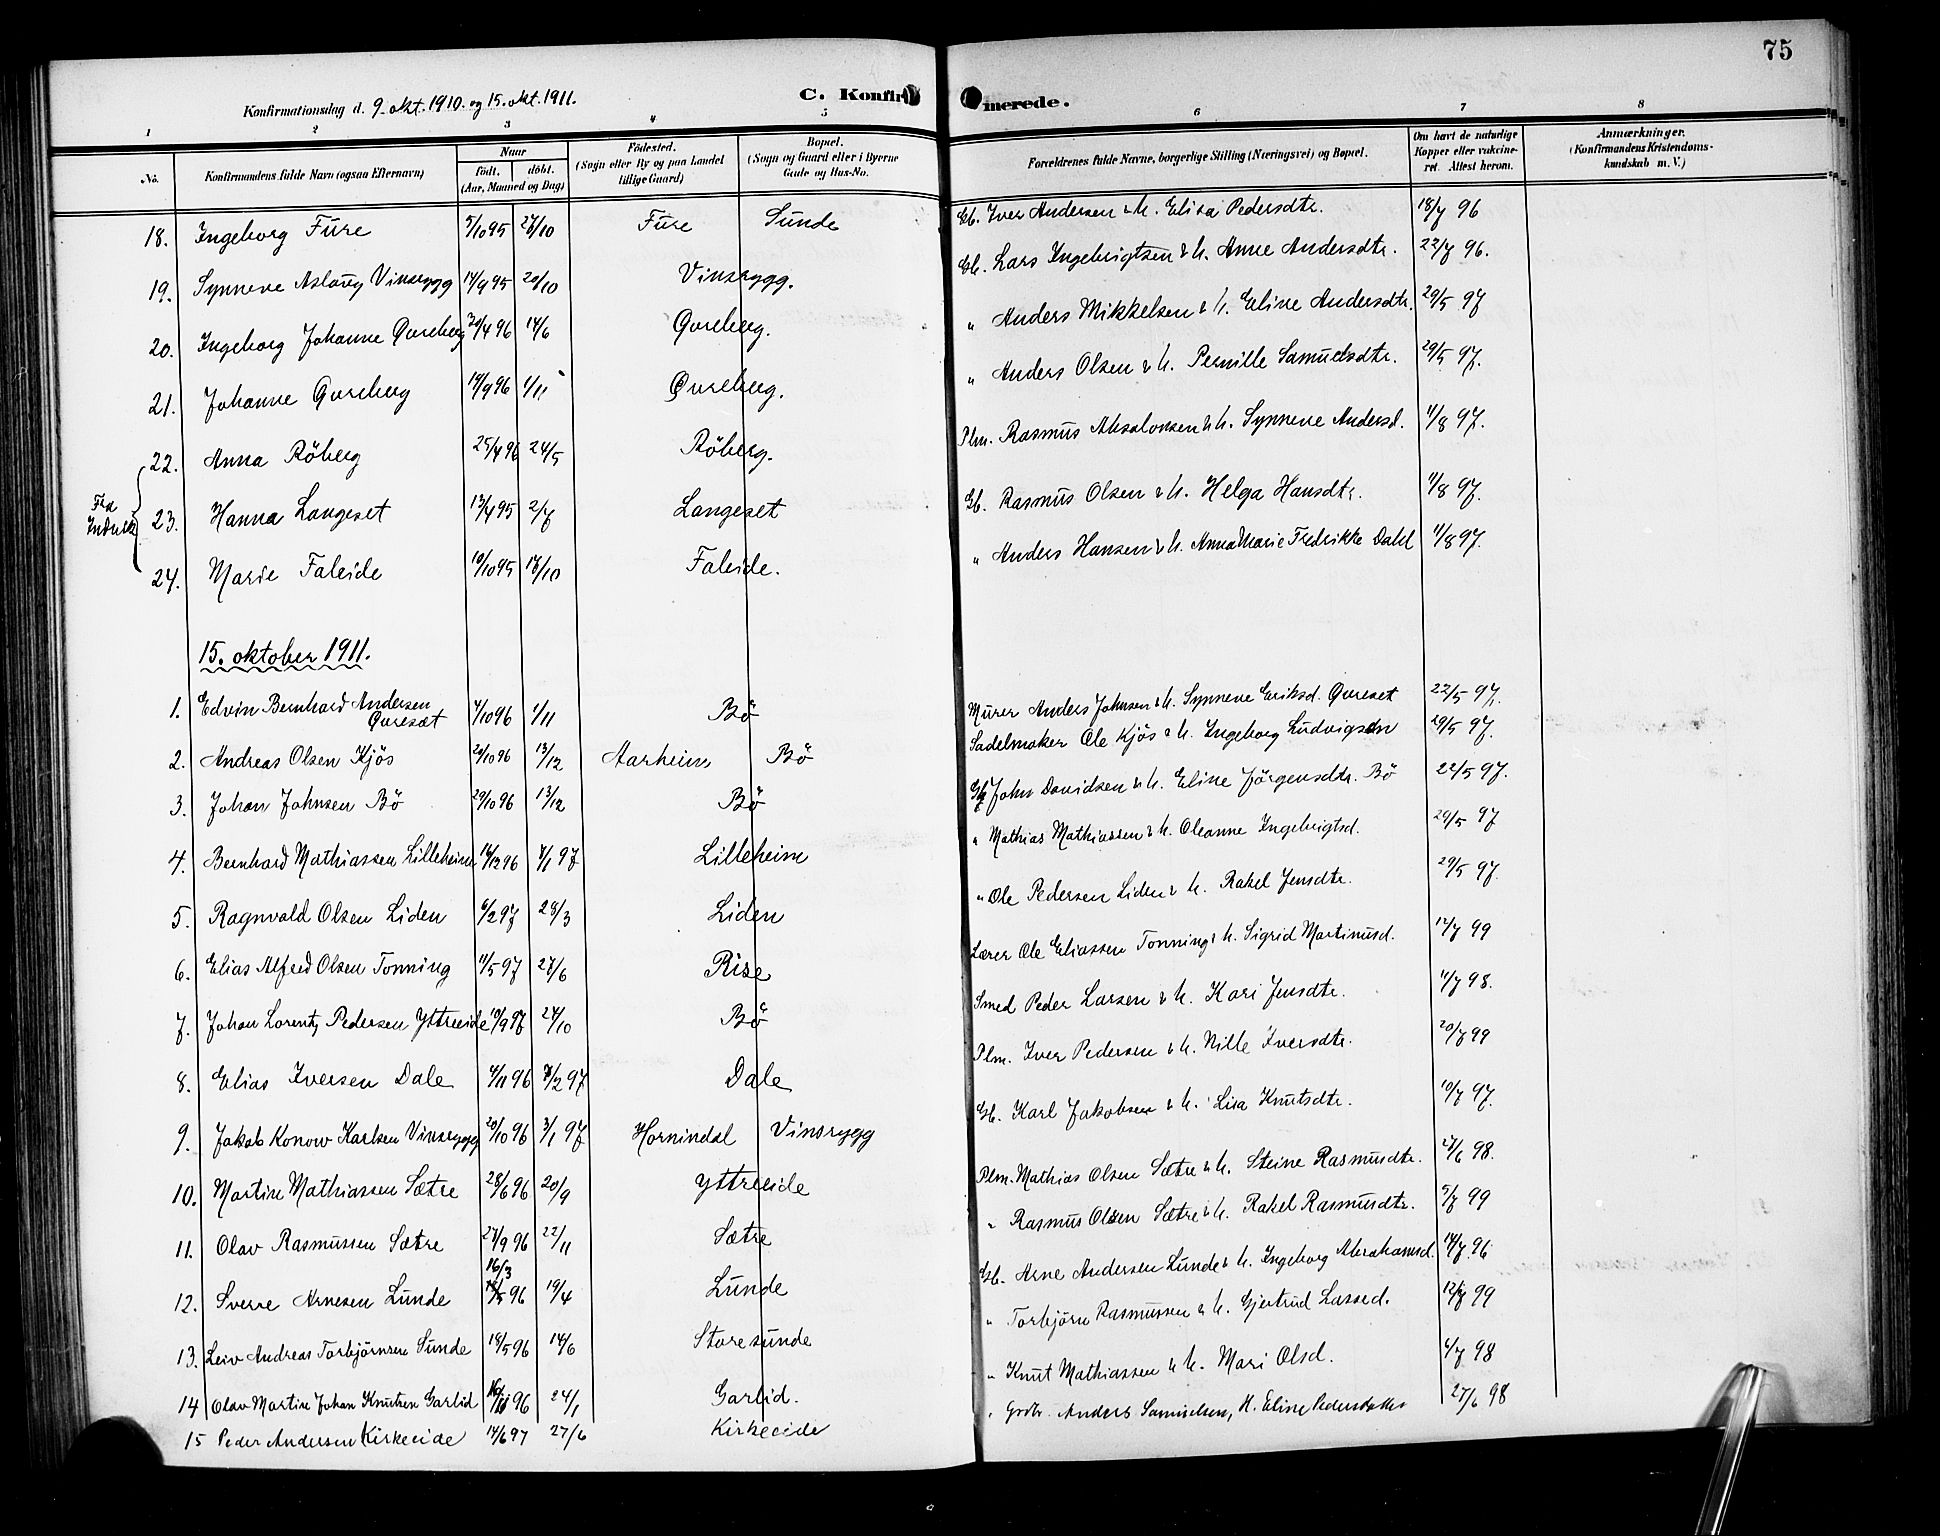 75
Konfirmationsdag d. 9. okt. 1910. og 15. okt. 1911.
C. Konfir merede.
1 2 3 4 5 6 7 8
No.
Konfirmandens fulde Navn (ogsaa Efternavn)
Naar
født. døbt.
(Aar, Maaned og Dag)
Fødested.
(Sogn eller By og paa Landet
tillige Gaard)
Bopæl.
(Sogn og Gaard eller i Byerne
Gade og Hus-No.
Forældrenes fulde Navne, borgerlige Stilling (Næringsvei) og Bopæl.
Om havt de naturlige
Kopper eller vaksine-
ret. Attest herom.
Anmærkninger.
(Konfirmandens Kristendoms-
kundskab m. V.)
18. Ingeborg Fure 5/10 95 Fure Sunde Gb. Iver Andersen & h. Elisa Pedersdtr. 18/7 96
19. Synneve Aslaug Vinsrygg 14/9 95 20/10 Vinsrygg. Gb. Lars Ingebrigtsen & h. Anne Andersdtr. 22/7 96.
20. Ingeborg Johanne Qvreberg 30/4 96 14/6 Qvreberg. " Anders Mikkelsen & h. Eline Andersdtr. 29/5 97
21. Johanne Qvreberg 14/9 96 1/11 Qvreberg. " Anders Olsen & h. Pernille Samuelsdtr. 29/5 97.
22. Anna Röberg 25/4 96 24/5 Röberg. Plm. Rasmus Absalonsen & h. Synneve Andersd. 11/8 97.
Fra
23. Hanna Langeset 13/4 95 2/7 Langeset Gb. Rasmus Olsen & h. Helga Hansdtr. 11/8 97.
24. Marie Faleide 10/10 95 Faleide. " Anders Hansen & h. Anna Marie Fredrikke Dahl 11/8 97.
15. oktober 1911.
1. Edvin Bernhard Andersen
Qvresæt 7/10 96 1/11 Bö Murer Anders Johnsen & h. Synneve Eriksd. Qvreset 22/5 97.
2. Andreas Olsen Kjös 20/10 96 13/12 Aarheim Bö Sadelmaker Ole Kjös & h. Ingeborg Ludvigsen 29/5 97.
3. Johan Johnsen Bö 29/10 96 13/12 Bö Gb John Davidsen & h. Eline Jörgensdtr. Bö 22/5 97.
4. Bernhard Mathiassen Lilleheim 14/12 96 Lilleheim " Mathias Mathiassen & h. Oleanne Ingebrigtsd. 29/5 97
5. Ragnvald Olsen Liden 6/2 97 28/3 Liden " Ole Pedersen Liden & h. Rakel Jensdtr. 29/5 97.
6. Elias Alfred Olsen Tonning 11/5 97 27/6 Rise Lærer Ole Eliassen Tonning & h. Sigrid Martinusd. 12/7 99
7. Johan Lorentz Pedersen Yttreeide 10/9 97 24/10 Bö Smed Peder Larsen & h. Kari Jensdtr. 11/7 98.
8. Elias Iversen Dale 4/11 96 Dale Plm. Iver Pedersen & h. Nille Iversdtr. 20/7 99
9. Jakob Konow Karlsen Vinsrygg 20/10 96 3/1 97 Hornindal Vinsrygg Gb. Karl Jakobsen & h. Lisa Knutsdtr. 10/7 97.
10. Martin Mathiassen Sætre 28/6 96 20/9 Yttreeide Plm. Mathias Olsen Sætre & h. Steine Rasmusdtr. 27/6 98.
11. Olav Rasmussen Sætre 27/9 96 22/11 Sætre " Rasmus Olsen Sætre & h. Rakel Rasmusdtr. 5/7 99
16/3
12. Sverre Arnesen Lunde 96 19/4 Lunde Gb. Arne Andersen Lunde & h. Ingeborg Abrahamsd. 14/7 96
13. Leiv Andreas Torbjörnsen Sunde 18/5 96 14/6 Storesunde " Torbjörn Rasmussen & h. Gjertrud Lassed. 12/7 99
14 Olav Martin Johan Knutsen Garlid 96 24/1 Garlid. " Knut Mathiassen & h. Mari Olsd. 4/7 98
15 Peder Andersen Kirkeeide 14/6 97 27/6 Kirkeeide " Grdbr. Anders Samuelsen, H. Eline Pedersdatter 27/6 98